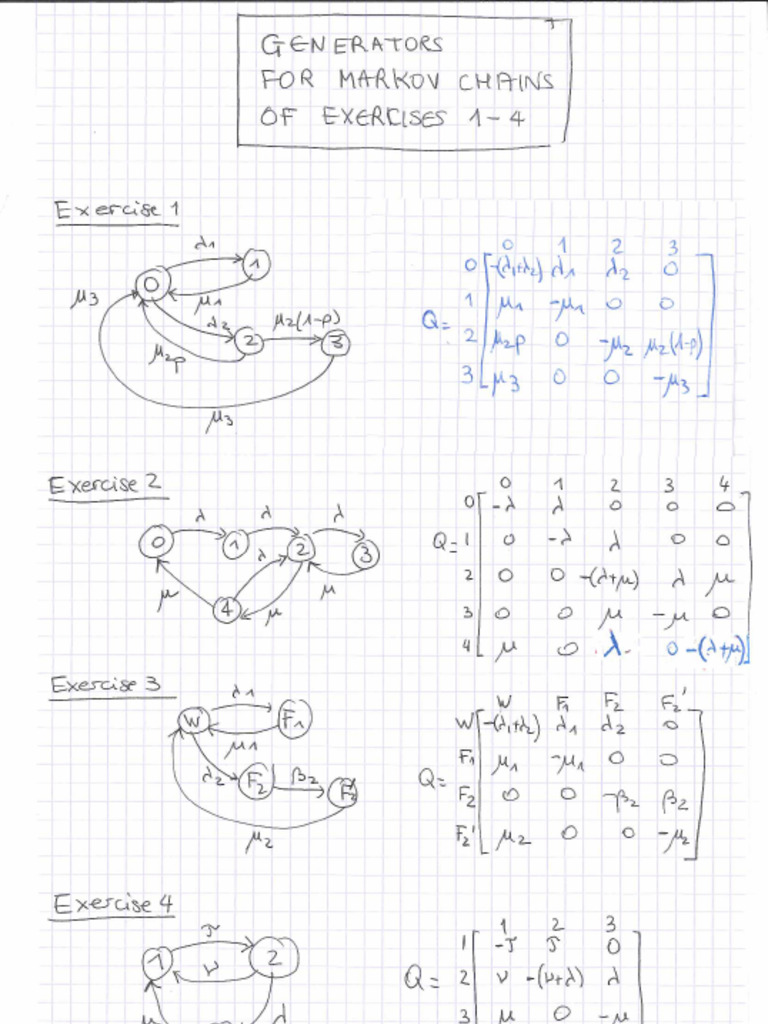 GENERATORS
FOR MARKOV CHAINS
OF EXERCISES 1-4
Exercise 1
λ1
0 1
μ1
μ3
λ2 μ2(1-p)
2 3
μ2p
μ3
0 1 2 3
0 -(λ1+λ2) λ1 λ2 0
1 μ1 -μ1 0 0
Q=
2 μ2p 0 -μ2 μ2(1-p)
3 μ3 0 0 -μ3
Exercise 2
λ λ λ
0 1 2 3
λ
μ 4 μ μ
0 1 2 3 4
0 -λ λ 0 0 0
Q= 1 0 -λ λ 0 0
2 0 0 -(λ+μ) λ μ
3 0 0 μ -μ 0
4 μ 0 λ 0 -(λ+μ)
Exercise 3
λ1
W F1
μ1
λ2 F2 β2 F2'
μ2
W F1 F2 F2'
W -(λ1+λ2) λ1 λ2 0
F1 μ1 -μ1 0 0
Q=
F2 0 0 -β2 β2
F2' μ2 0 0 -μ2
Exercise 4
1 2
ν
μ λ
1 2 3
1 0
Q= 2 ν -(ν+λ) λ
3 μ 0 -μ